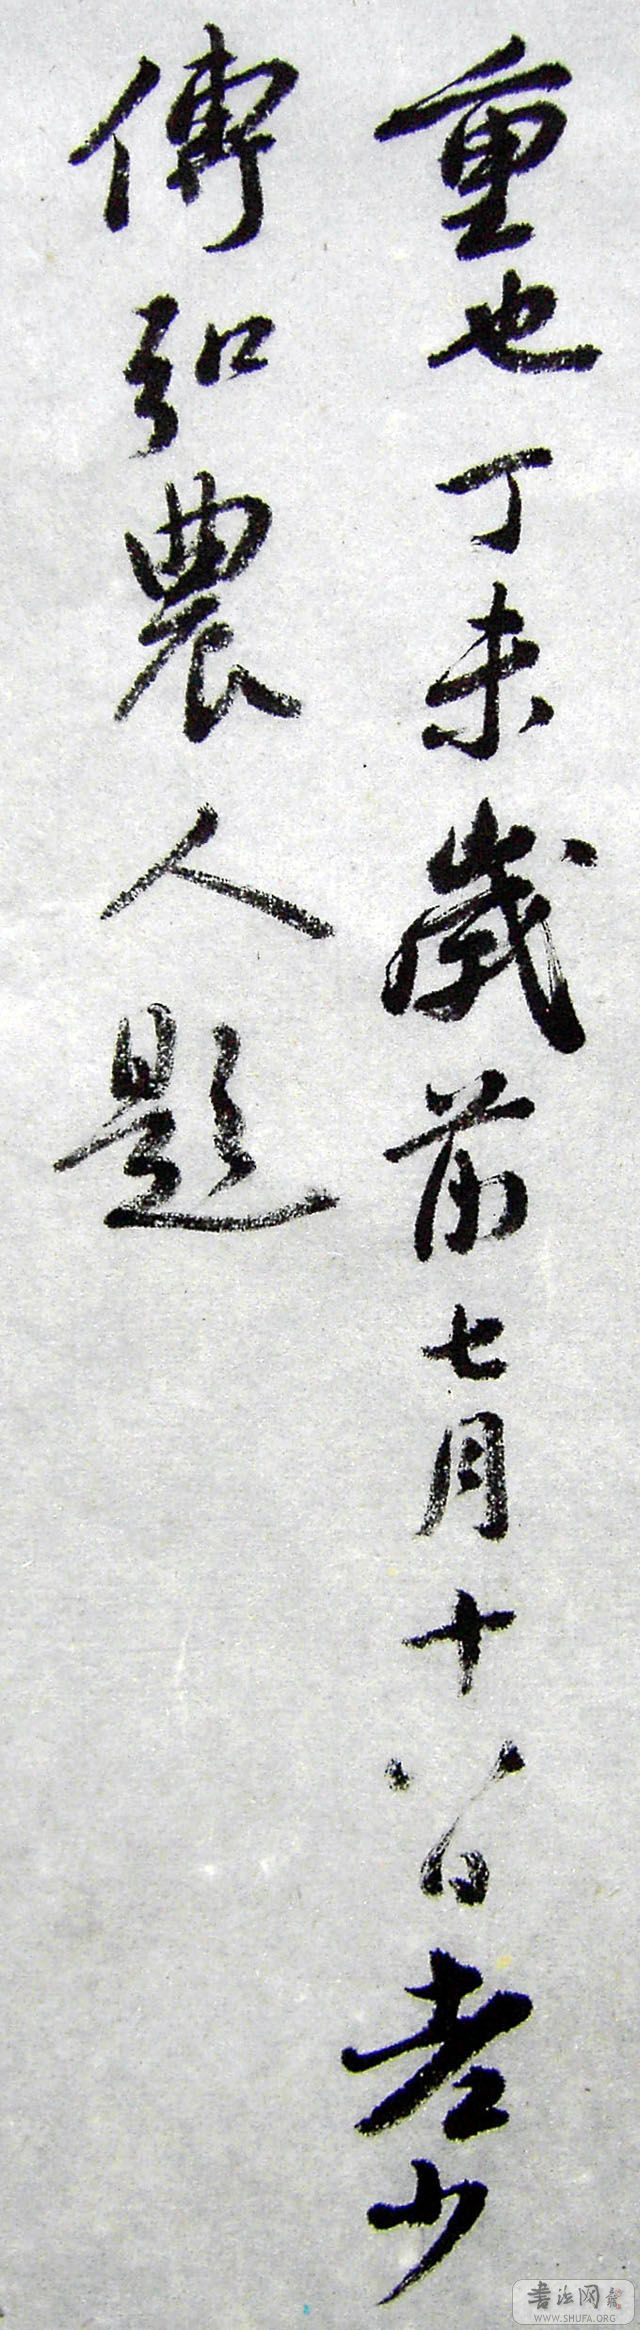 重也丁未歲前七月十八日老少
傅弘農人題
書法网
WWW.SHUFA.ORG